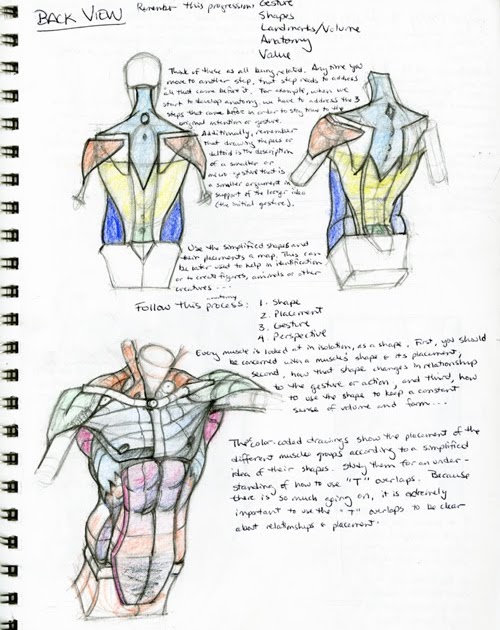 BACK VIEW
Remember this progression: Gesture
Shapes
Landmarks/Volume
Anatomy
Value
Think of these as all being related. Any time you
move to another step, that step needs to address
all that came before it. For example, when we
start to develop anatomy we have to address the 3
steps that came before in order to stay true to the
original intention or gesture.
Additionally, remember
that drawing the pecs or
deltoid is the description
of a smaller or
micro-gesture that is
a smaller argument in
support of the larger idea
(the initial gesture).
Use the simplified shapes and
their placements a map. They can
be later used to help in identification
or to create figures, animals or other
creatures...
anatomy
Follow this process: 1. Shape
2. Placement
3. Gesture
4. Perspective
Every muscle is looked at in isolation, as a shape. First, you should
be concerned with a muscles' shape & its placement,
second, how that shape changes in relationship
to the gesture or action, and third, how
to use the shape to keep a constant
sense of volume and form...
The color-coded drawings show the placement of the
different muscle groups according to a simplified
idea of their shapes. Study them for an under-
standing of how to use "T" overlaps. Because
there is so much going on, it is extremely
important to use the "T" overlaps to be clear
about relationships & placement.